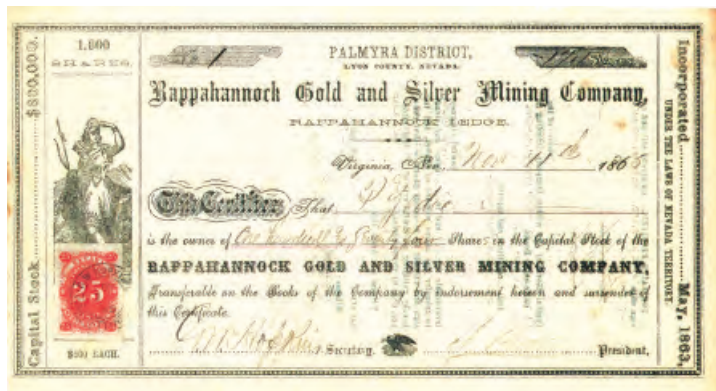 Capital Stock $800,000.
1.600
SHARES.
25
$500 EACH.
No. 1
PALMYRA DISTRICT,
LYON COUNTY, NEVADA.
Rappahannock Gold and Silver Mining Company,
RAPPAHANNOCK LEDGE.
Virginia, Nov 11th 1865
This Certifies That
is the owner of One hundred & Seventy four Shares in the Capital Stock of the
RAPPAHANNOCK GOLD AND SILVER MINING COMPANY,
Transferable on the Books of the Company by indorsement hereon and surrender of
this Certificate.
Secretary. President,
Incorporated May, 1863,
UNDER THE LAWS OF NEVADA TERRITORY.